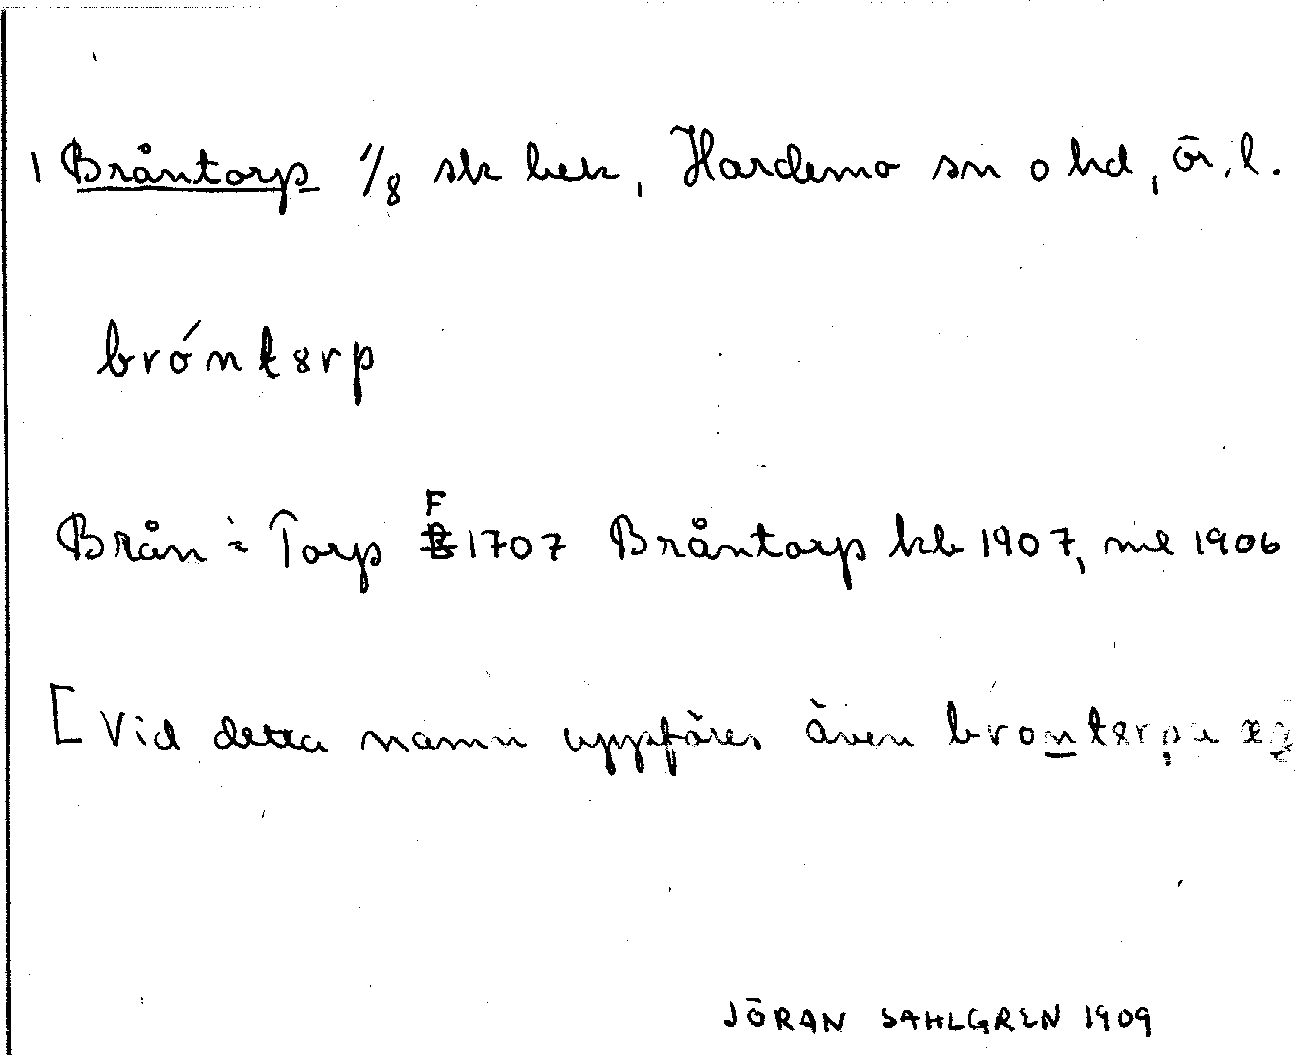 1 Bråntorp 1/8 sk hek, Hardemo sn o hd, Ör. l.
bróntɜrp
Brån = Torp F 1707 Bråntorp kb 1907, ml 1906
[Vid detta namn uppföres även
JÖRAN SAHLGREN 1909